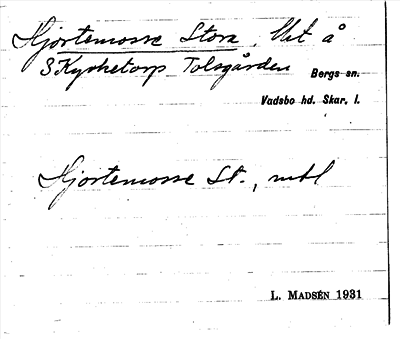 Hjortemosse Stora. Mst å
S Kyrketorp Tolsgården Bergs sn.
Vadsbo hd. Skar. l.
Hjortemosse St., mtl
L. MADSÉN 1931